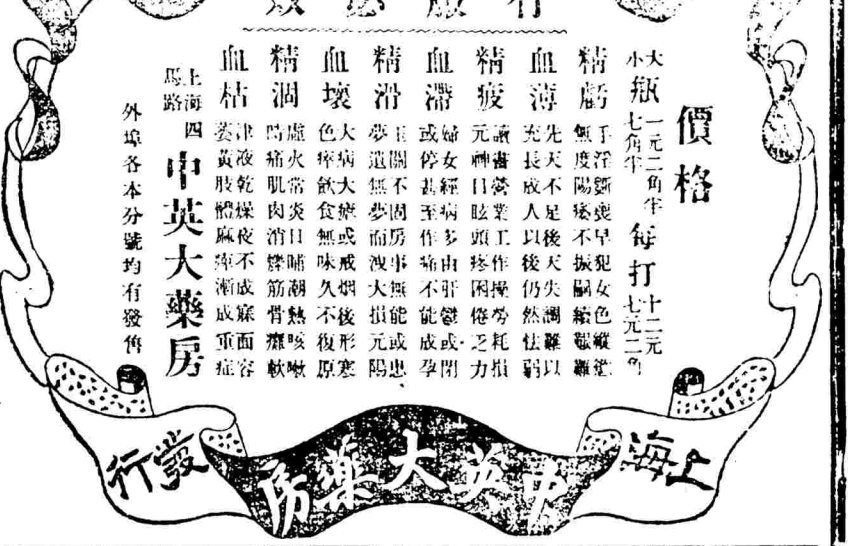 價格
大瓶一元二角半 每打十二元
小瓶七角半 每打七元二角
精虧 手淫斵喪早犯女色縱慾
無度陽痿不振嗣續艱難
血薄 先天不足後天失調難以
充長成人以後仍然怯弱
精疲 讀書營業工作操勞耗損
元神目眩頭疼困倦乏力
血滯 婦女經病多由肝鬱或閉
或停甚至作痛不能成孕
精滑 玉關不固房事無能或患
夢遺無夢而洩大損元陽
血壞 大病大瘡或戒烟後形寒
色瘁飲食無味久不復原
精涸 虛火常炎日晡潮熱咳嗽
時痛肌肉消爍筋骨癱軟
血枯 津液乾燥夜不成寐面容
萎黃肢體麻痺漸成重症
上海四馬路 中英大藥房
外埠各本分號均有發售
上海
中英大藥房
發行